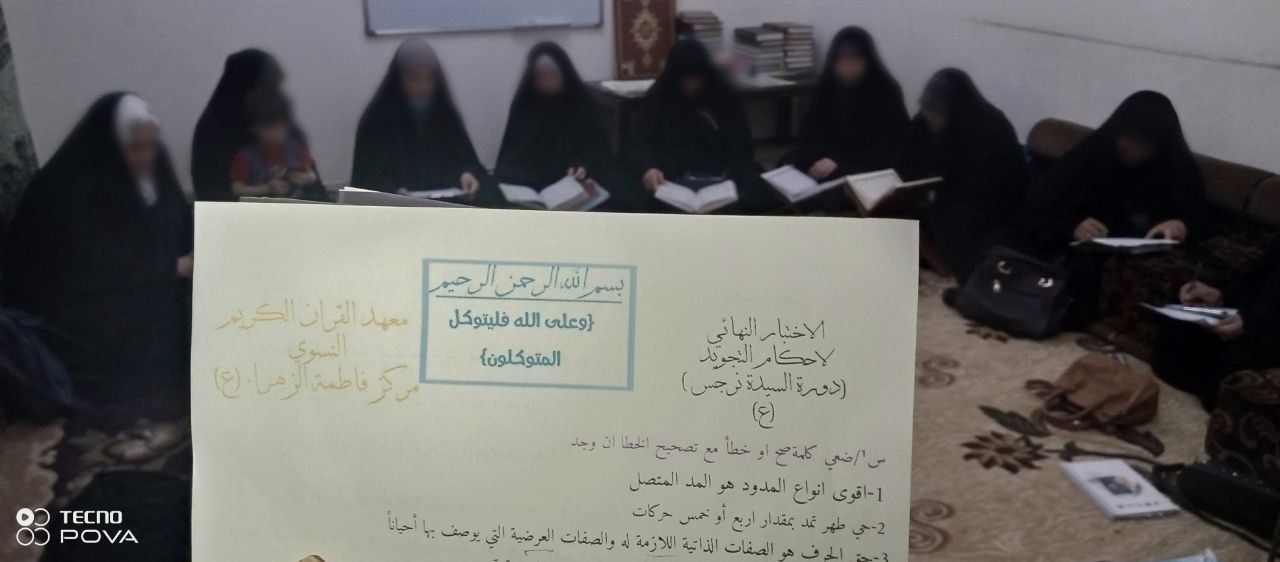 بسم الله الرحمن الرحيم
{وعلى الله فليتوكل
المتوكلون}
الاختبار النهائي
لاحكام التجويد
(دورة السيدة نرجس)
(ع)
معهد القران الكريم
النسوي
مركز فاطمة الزهراء (ع)
س١/ضعي كلمة صح او خطأ مع تصحيح الخطا ان وجد
1-اقوى انواع المدود هو المد المتصل
2-حي طهر تمد بمقدار اربع أو خمس حركات
3-حق الحرف هو الصفات الذاتية اللازمة له والصفات العرضية التي يوصف بها أحياناً
TECNO
POVA